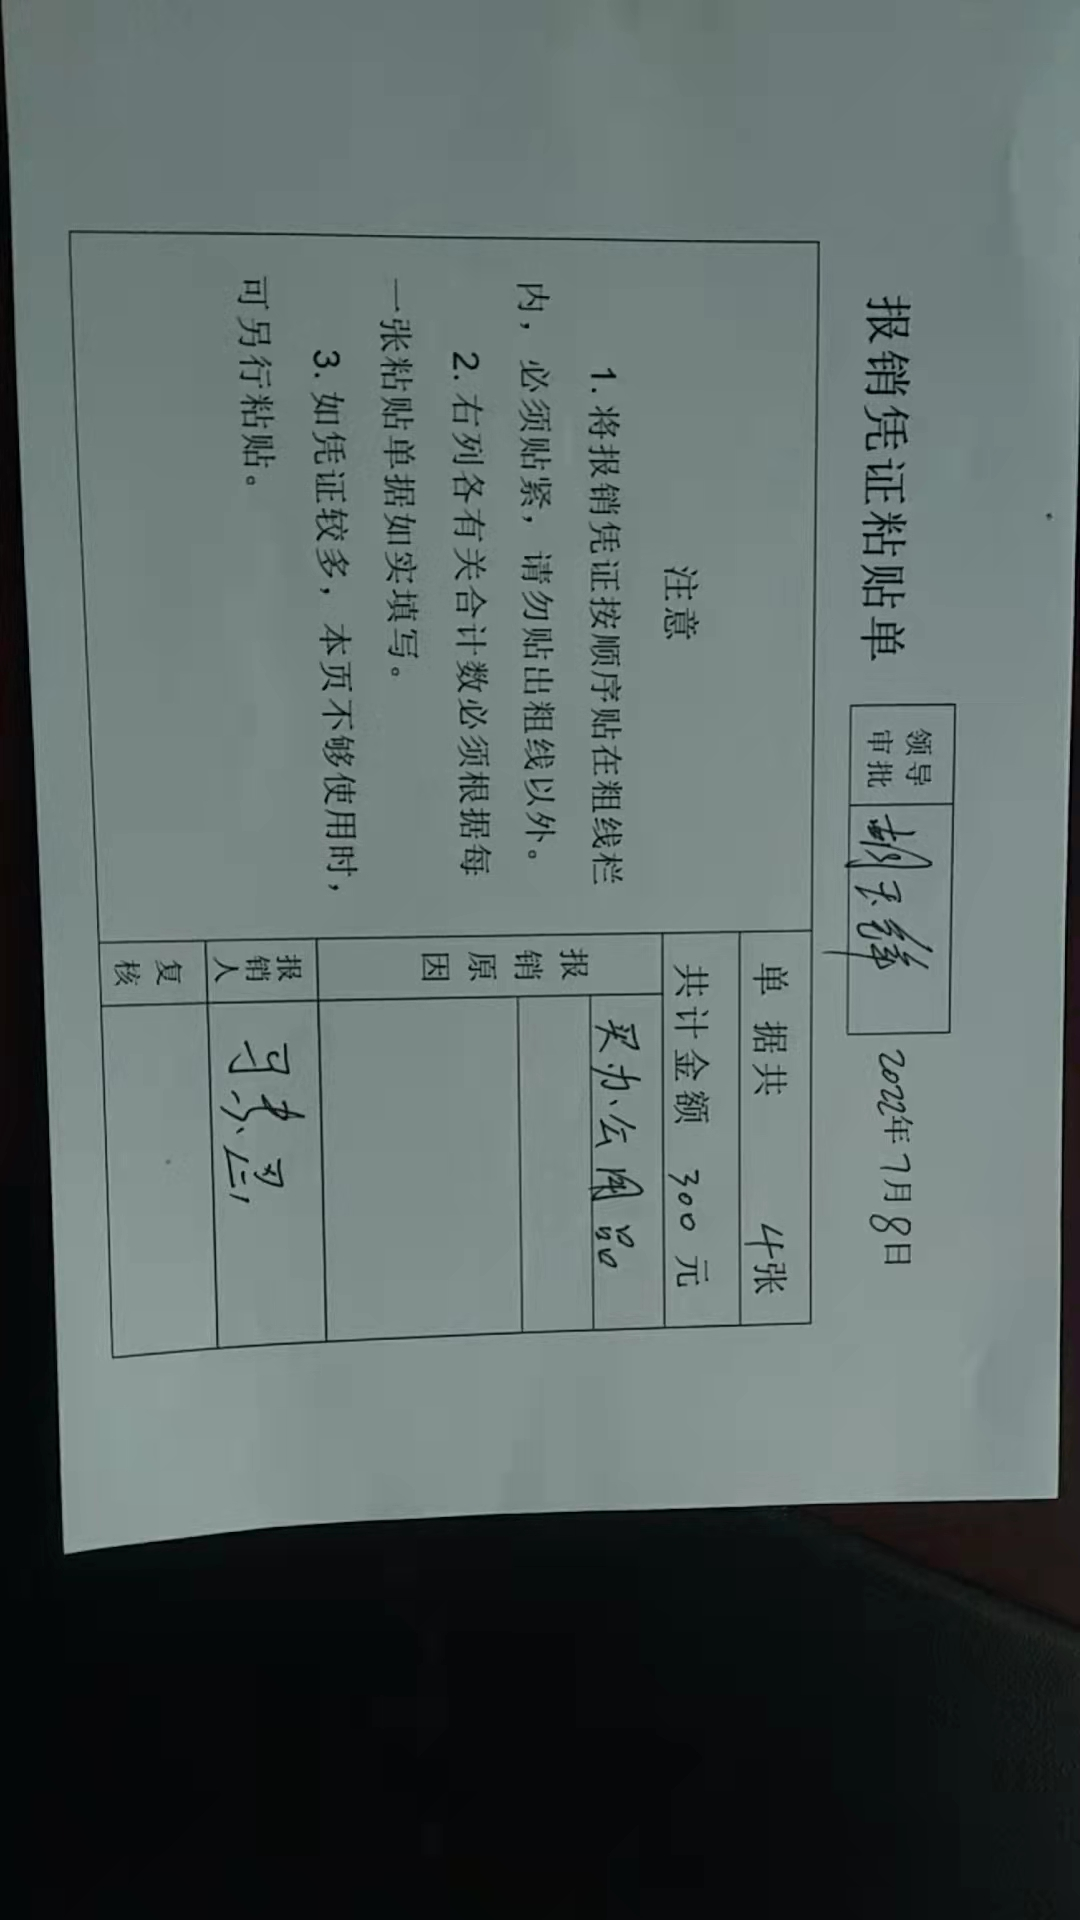 报销凭证粘贴单
领导审批
2022年7月8日
注意
1.将报销凭证按顺序贴在粗线栏
内，必须贴紧，请勿贴出粗线以外。
2.右列各有关合计数必须根据每
一张粘贴单据如实填写。
3.如凭证较多，本页不够使用时，
可另行粘贴。
单据共 4张
共计金额 300元
报销原因
买办公用品
报销人
复核